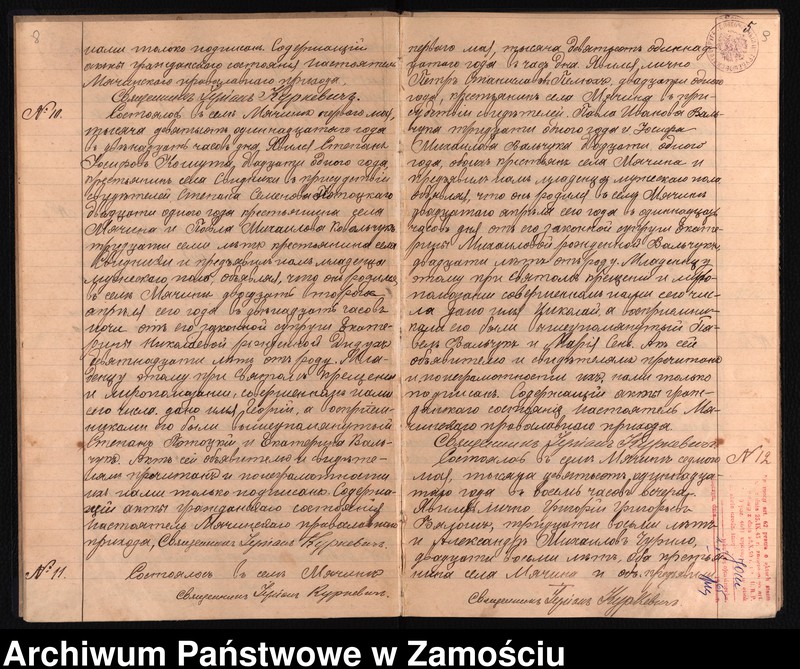 8
нами только подписанъ. Содержащій
акты гражданскаго состоянія Настоятель
Мячинскаго православнаго прихода.
Священникъ Куркевичъ.
№ 10.
Состоялось въ селѣ Мячинѣ перваго мая,
тысяча девятьсотъ одиннадцатаго года
въ двѣнадцать часовъ дня. Явился Степанъ
Іосифовъ Кошута, двадцати одного года,
крестьянинъ села въ присутствіи
свидѣтелей Степана Семенова Потоцкаго
двадцати одного года крестьянина села
Мячина и Павла Михаилова Ковальчука
тридцати семи лѣтъ крестьянина села
и предъявилъ намъ младенца
мужескаго пола, объявляя, что онъ родился
въ селѣ Мячинѣ двадцать втораго
апрѣля сего года въ двѣнадцать часовъ
ночи отъ его законной супруги Екате-
рины Николаевой рожденной Дидухъ
девятнадцати лѣтъ отъ роду. Мла-
денцу этому при Святомъ Крещеніи
и миропомазаніи, совершенномъ нами
сего числа, дано имя Георгій, а воспріем-
никами его были вышеупомянутый
Степанъ Потоцкій и Екатерина Валь-
чукъ. Актъ сей объявителю и свидѣте-
лямъ прочитанъ и по неграмотности
ихъ нами только подписанъ. Содержа-
щій акты гражданскаго состоянія
Настоятель Мячинскаго православнаго
прихода, Священникъ Куркевичъ.
№ 11.
Состоялось въ селѣ Мячинѣ
Священникъ Куркевичъ.
5
9
перваго мая, тысяча девятьсотъ одиннад-
цатаго года въ часъ дня. Явился лично
Петръ Станиславовъ двадцати одного
года, крестьянинъ села Мячина въ при-
сутствіи свидѣтелей Павла Иванова Валь-
чука тридцати одного года и Іосифа
Михаилова Вальчука двадцати одного
года, обоихъ крестьянъ села Мячина и
предъявилъ намъ младенца мужескаго пола
объявляя, что онъ родился въ селѣ Мячинѣ
двадцатаго апрѣля сего года въ одиннадцать
часовъ дня отъ его законной супруги Екате-
рины Михаиловой рожденной Вальчукъ,
двадцати лѣтъ отъ роду. Младенцу
этому при Святомъ Крещеніи и миро-
помазаніи совершенномъ нами сего чи-
сла дано имя Николай, а воспріемни-
ками его были вышеупомянутый Па-
велъ Вальчукъ и Марія Сенъ. Актъ сей
объявителю и свидѣтелямъ прочитанъ
и, по неграмотности ихъ, нами только
подписанъ. Содержащій акты граж-
данскаго состоянія, Настоятель Мя-
чинскаго православнаго прихода.
Священникъ Куркевичъ.
№ 12
Состоялось въ селѣ Мячинѣ седьмого
мая, тысяча девятьсотъ одиннадца-
таго года въ восемь часовъ вечера.
Явились лично Григорій Григорьевъ
тридцати восьми лѣтъ
и Александръ Михаиловъ
двадцати восьми лѣтъ, оба крестья-
нина села Мячина и
Священникъ Куркевичъ.
Archiwum Państwowe w Zamościu